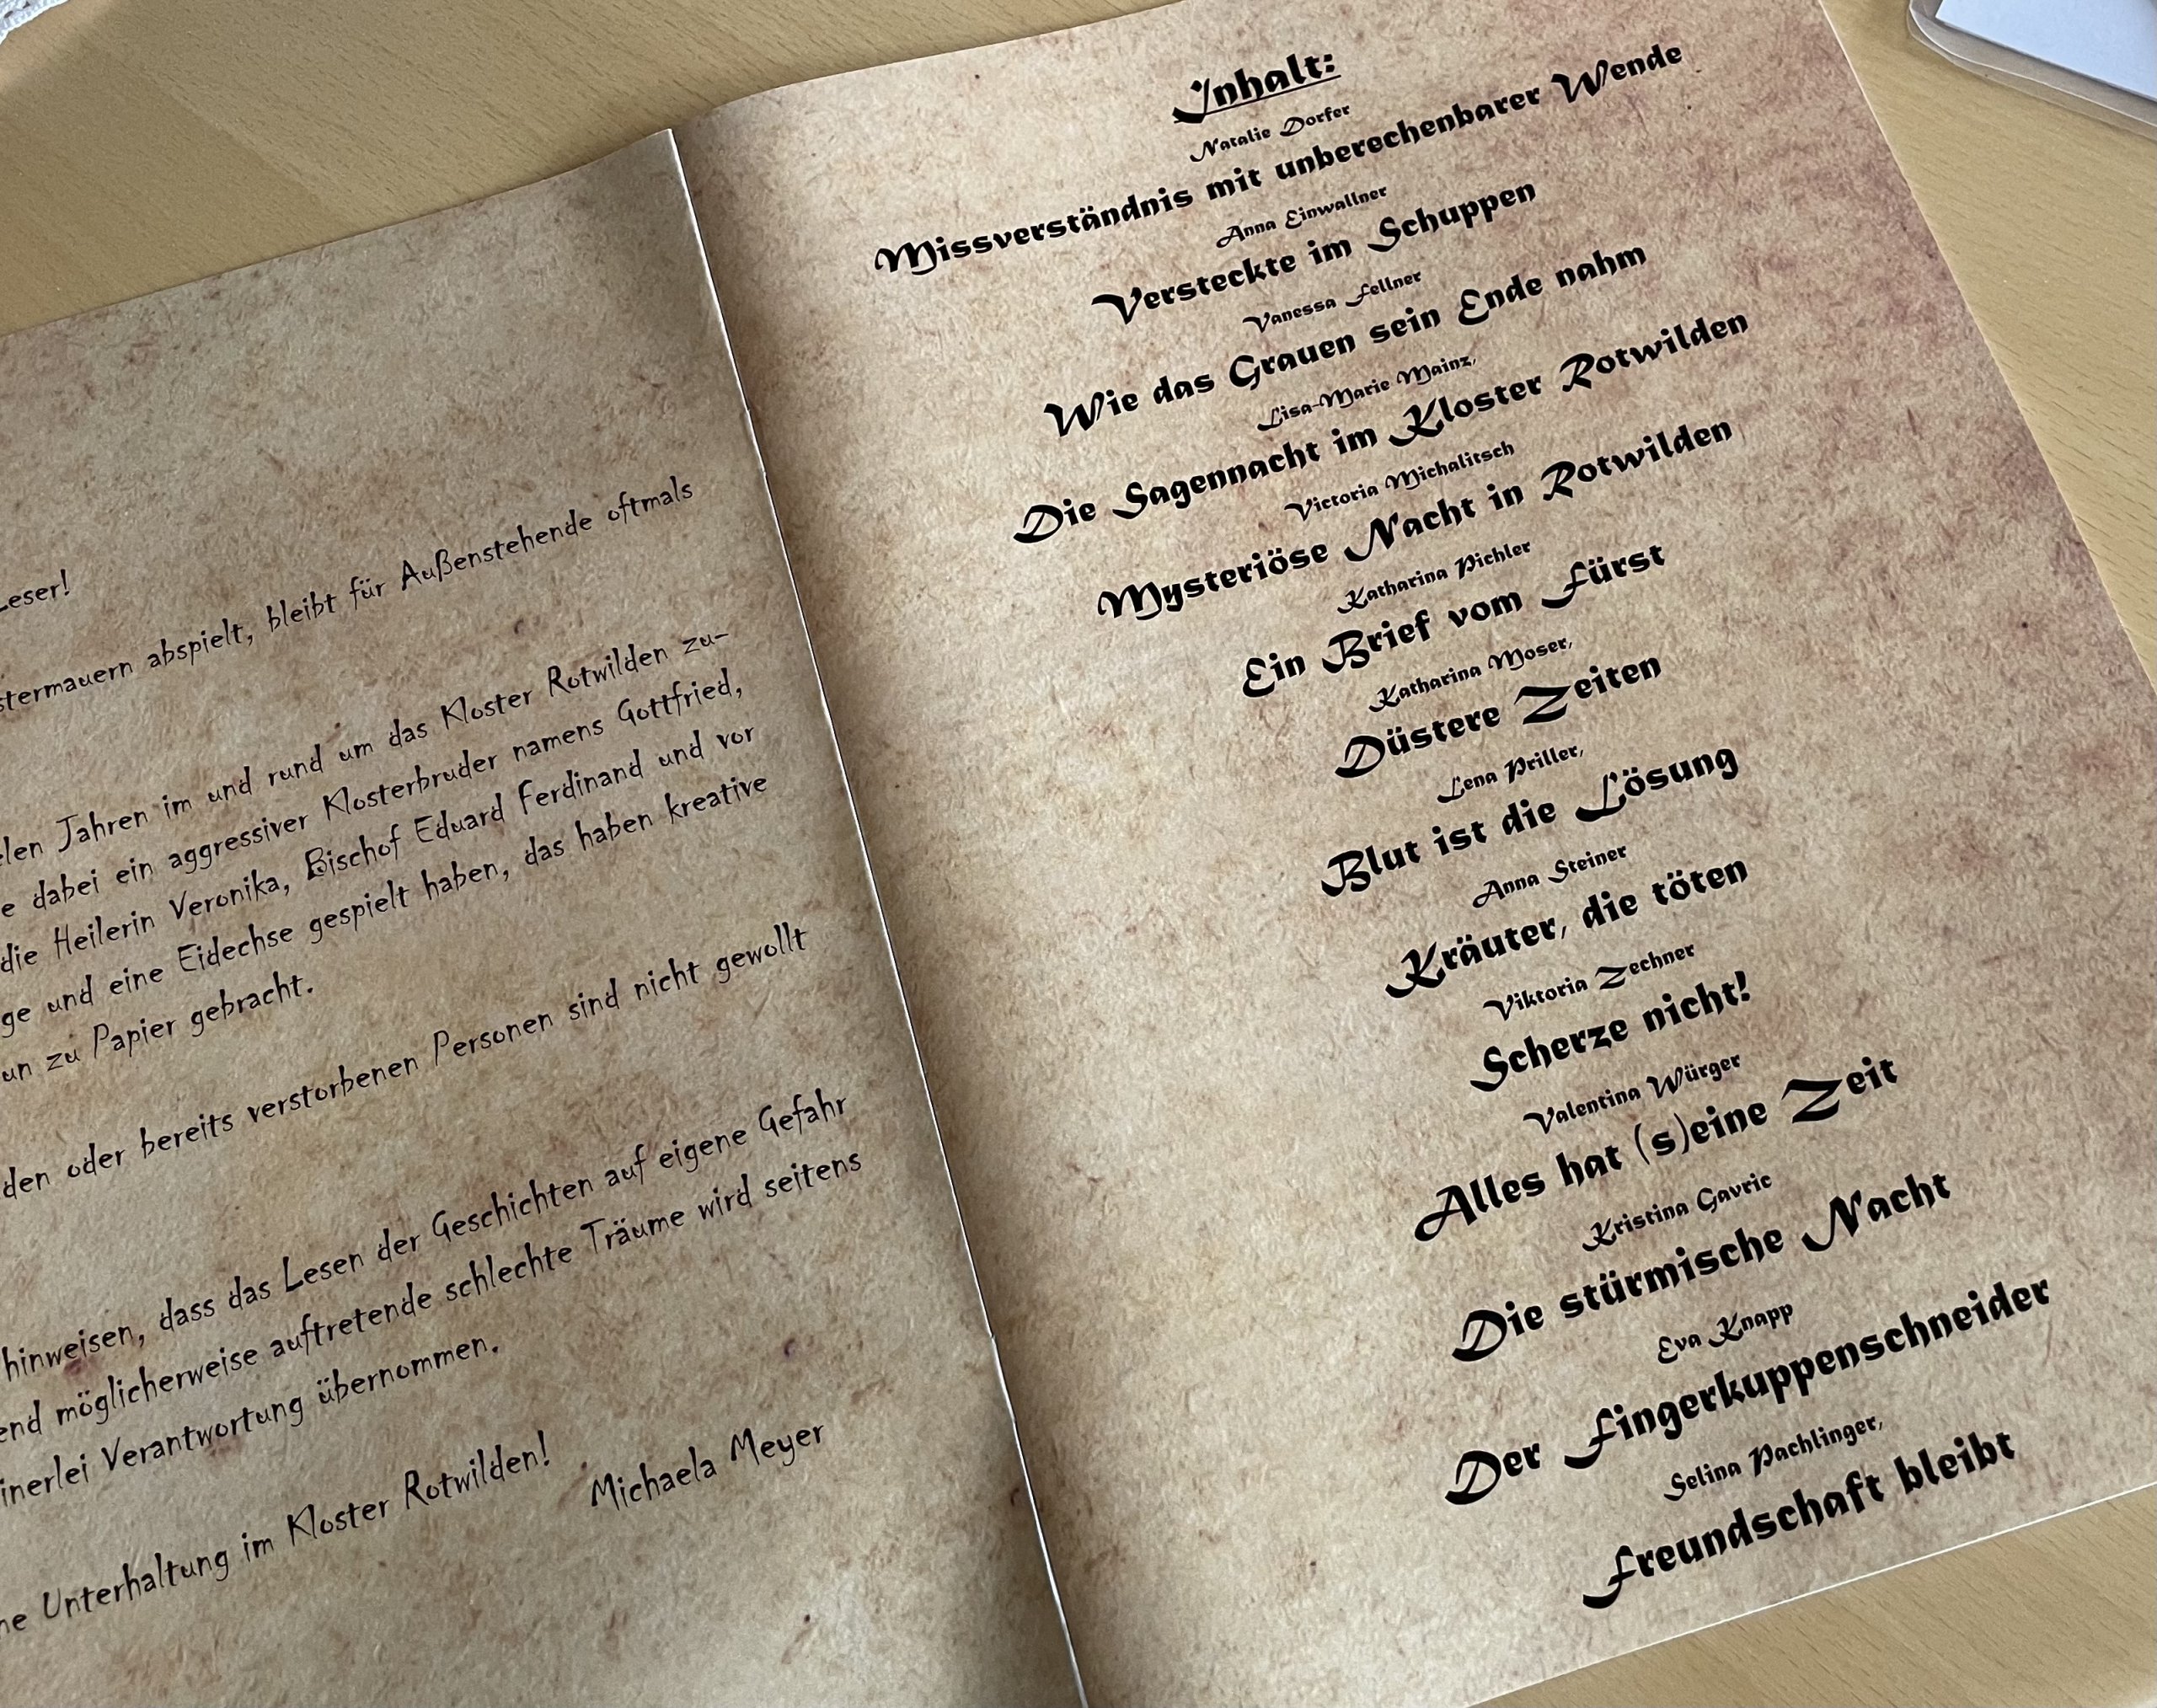 Leser!
abspielt, bleibt für Außenstehende oftmals
Jahren im und rund um das Kloster Rotwilden zu-
dabei ein aggressiver Klosterbruder namens Gottfried,
die Heilerin Veronika, Bischof Eduard Ferdinand und vor
und eine Eidechse gespielt haben, das haben kreative
zu Papier gebracht.
oder bereits verstorbenen Personen sind nicht gewollt
hinweisen, dass das Lesen der Geschichten auf eigene Gefahr
möglicherweise auftretende schlechte Träume wird seitens
Verantwortung übernommen.
Unterhaltung im Kloster Rotwilden!
Michaela Meyer
Inhalt:
Natalie Dorfer
Missverständnis mit unberechenbarer Wende
Anna Einwallner
Versteckte im Schuppen
Vanessa Fellner
Wie das Grauen sein Ende nahm
Lisa-Marie Mainz,
Die Sagennacht im Kloster Rotwilden
Victoria Michalitsch
Mysteriöse Nacht in Rotwilden
Katharina Pichler
Ein Brief vom Fürst
Katharina Moser,
Düstere Zeiten
Lena Priller,
Blut ist die Lösung
Anna Steiner
Kräuter, die töten
Viktoria Zechner
Scherze nicht!
Valentina Würger
Alles hat (s)eine Zeit
Kristina Gavric
Die stürmische Nacht
Eva Knapp
Der Fingerkuppenschneider
Selina Pachlinger,
Freundschaft bleibt